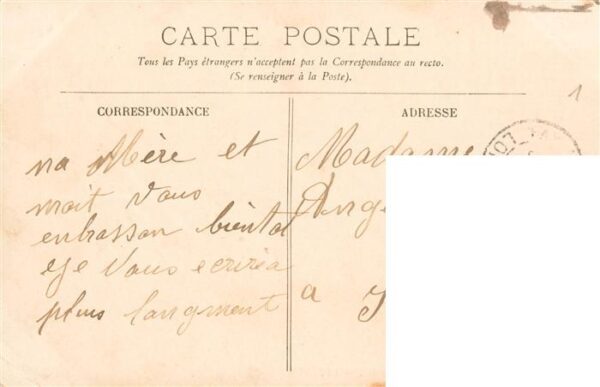 CARTE POSTALE
Tous les Pays étrangers n'acceptent pas la Correspondance au recto.
(Se renseigner à la Poste).
CORRESPONDANCE
ma Mère et
moit Vous
enbrasson bientot
eJe Vous ecrirèa
plus langment
ADRESSE
Madame
a
1